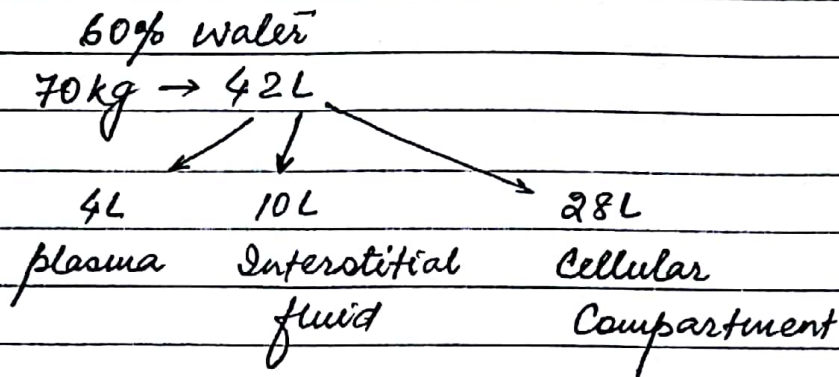 60% water
70kg → 42L
4L 10L 28L
plasma Interstitial Cellular
fluid Compartment